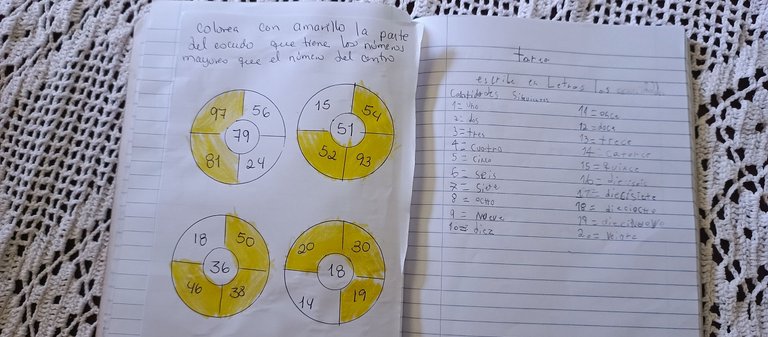 colorea con amarillo la parte
del escudo que tiene los números
mayores que el número del centro
97 56
79
81 24
15 54
51
52 93
18 50
36
46 38
20 30
18
14 19
tarea
escribe en Letras los
Cantidades
1= uno
2= dos
3= tres
4= cuatro
5= cinco
6= seis
7= siete
8= ocho
9= nueve
10= diez
11= once
12= doce
13= trece
14=
15= quince
16=
17= diecisiete
18= dieciocho
19=
20= veinte